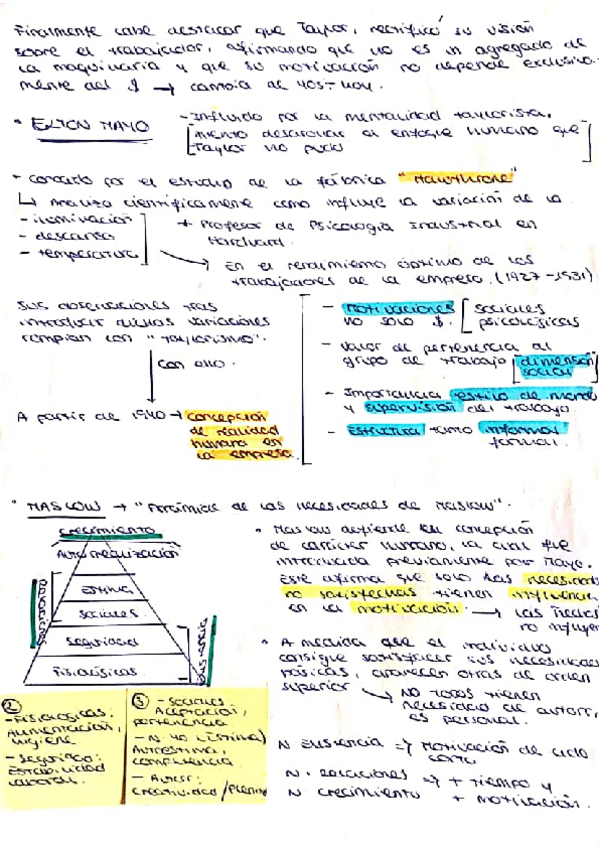 Finalmente cabe destacar que Taylor, rectificó su visión
sobre el trabajador, afirmando que no es un agregado de
la maquinaria y que su motivación no depende exclusiva-
mente del $ → cambia de 40s-hoy.
• ELTON MAYO
- Influido por la mentalidad taylorista.
[miento desarrollar el enfoque humano que
Taylor no pudo]
• conocido por el estudio de la fábrica "Hawthrone"
↳ Analiza científicamente como influye la variación de la
- iluminación
- descanso
- temperatura
* Profesor de Psicología Industrial en
Hardvard.
→ En el rendimiento óptimo de los
trabajadores de la empresa. (1927-1931)
Sus observaciones tras
introducir dichas variaciones
rompían con "taylorismo".
con ello.
A partir de 1940 → concepción
de realidad
humana en
la empresa.
- Motivaciones [sociales
no solo $. psicológicas
- Valor de pertenencia al
grupo de trabajo [dimensión
social]
- Importancia estilo de mando
y supervisión del trabajo.
- Estructura tanto informal
formal.
• MASLOW → "Pirámide de las necesidades de Maslow".
crecimiento
Autorrealización
Estima
Sociales
Seguridad
Fisiológicas.
Relaciones
Existencia
• Maslow defiende la concepción
de carácter humano, la cual fue
introducida previamente por Mayo.
Este afirma que solo las necesidades
no satisfechas tienen influencia
en la motivación. → las hechas
no influyen
• A medida que el individuo
consigue satisfacer sus necesidades
básicas, aparecen otras de orden
superior
→ No todos tienen
necesidad de autorr,
es personal.
N Existencia => Motivación de ciclo
corto
N. Relaciones => + tiempo y
N crecimiento + motivación.
②
- Fisiológicas:
Alimentación,
higiene
- Seguridad:
Estabilidad
laboral.
③ - Sociales
Aceptación,
pertenencia
- N. yo (Estima)
Autoestima,
competencia
- Autorr:
creatividad/